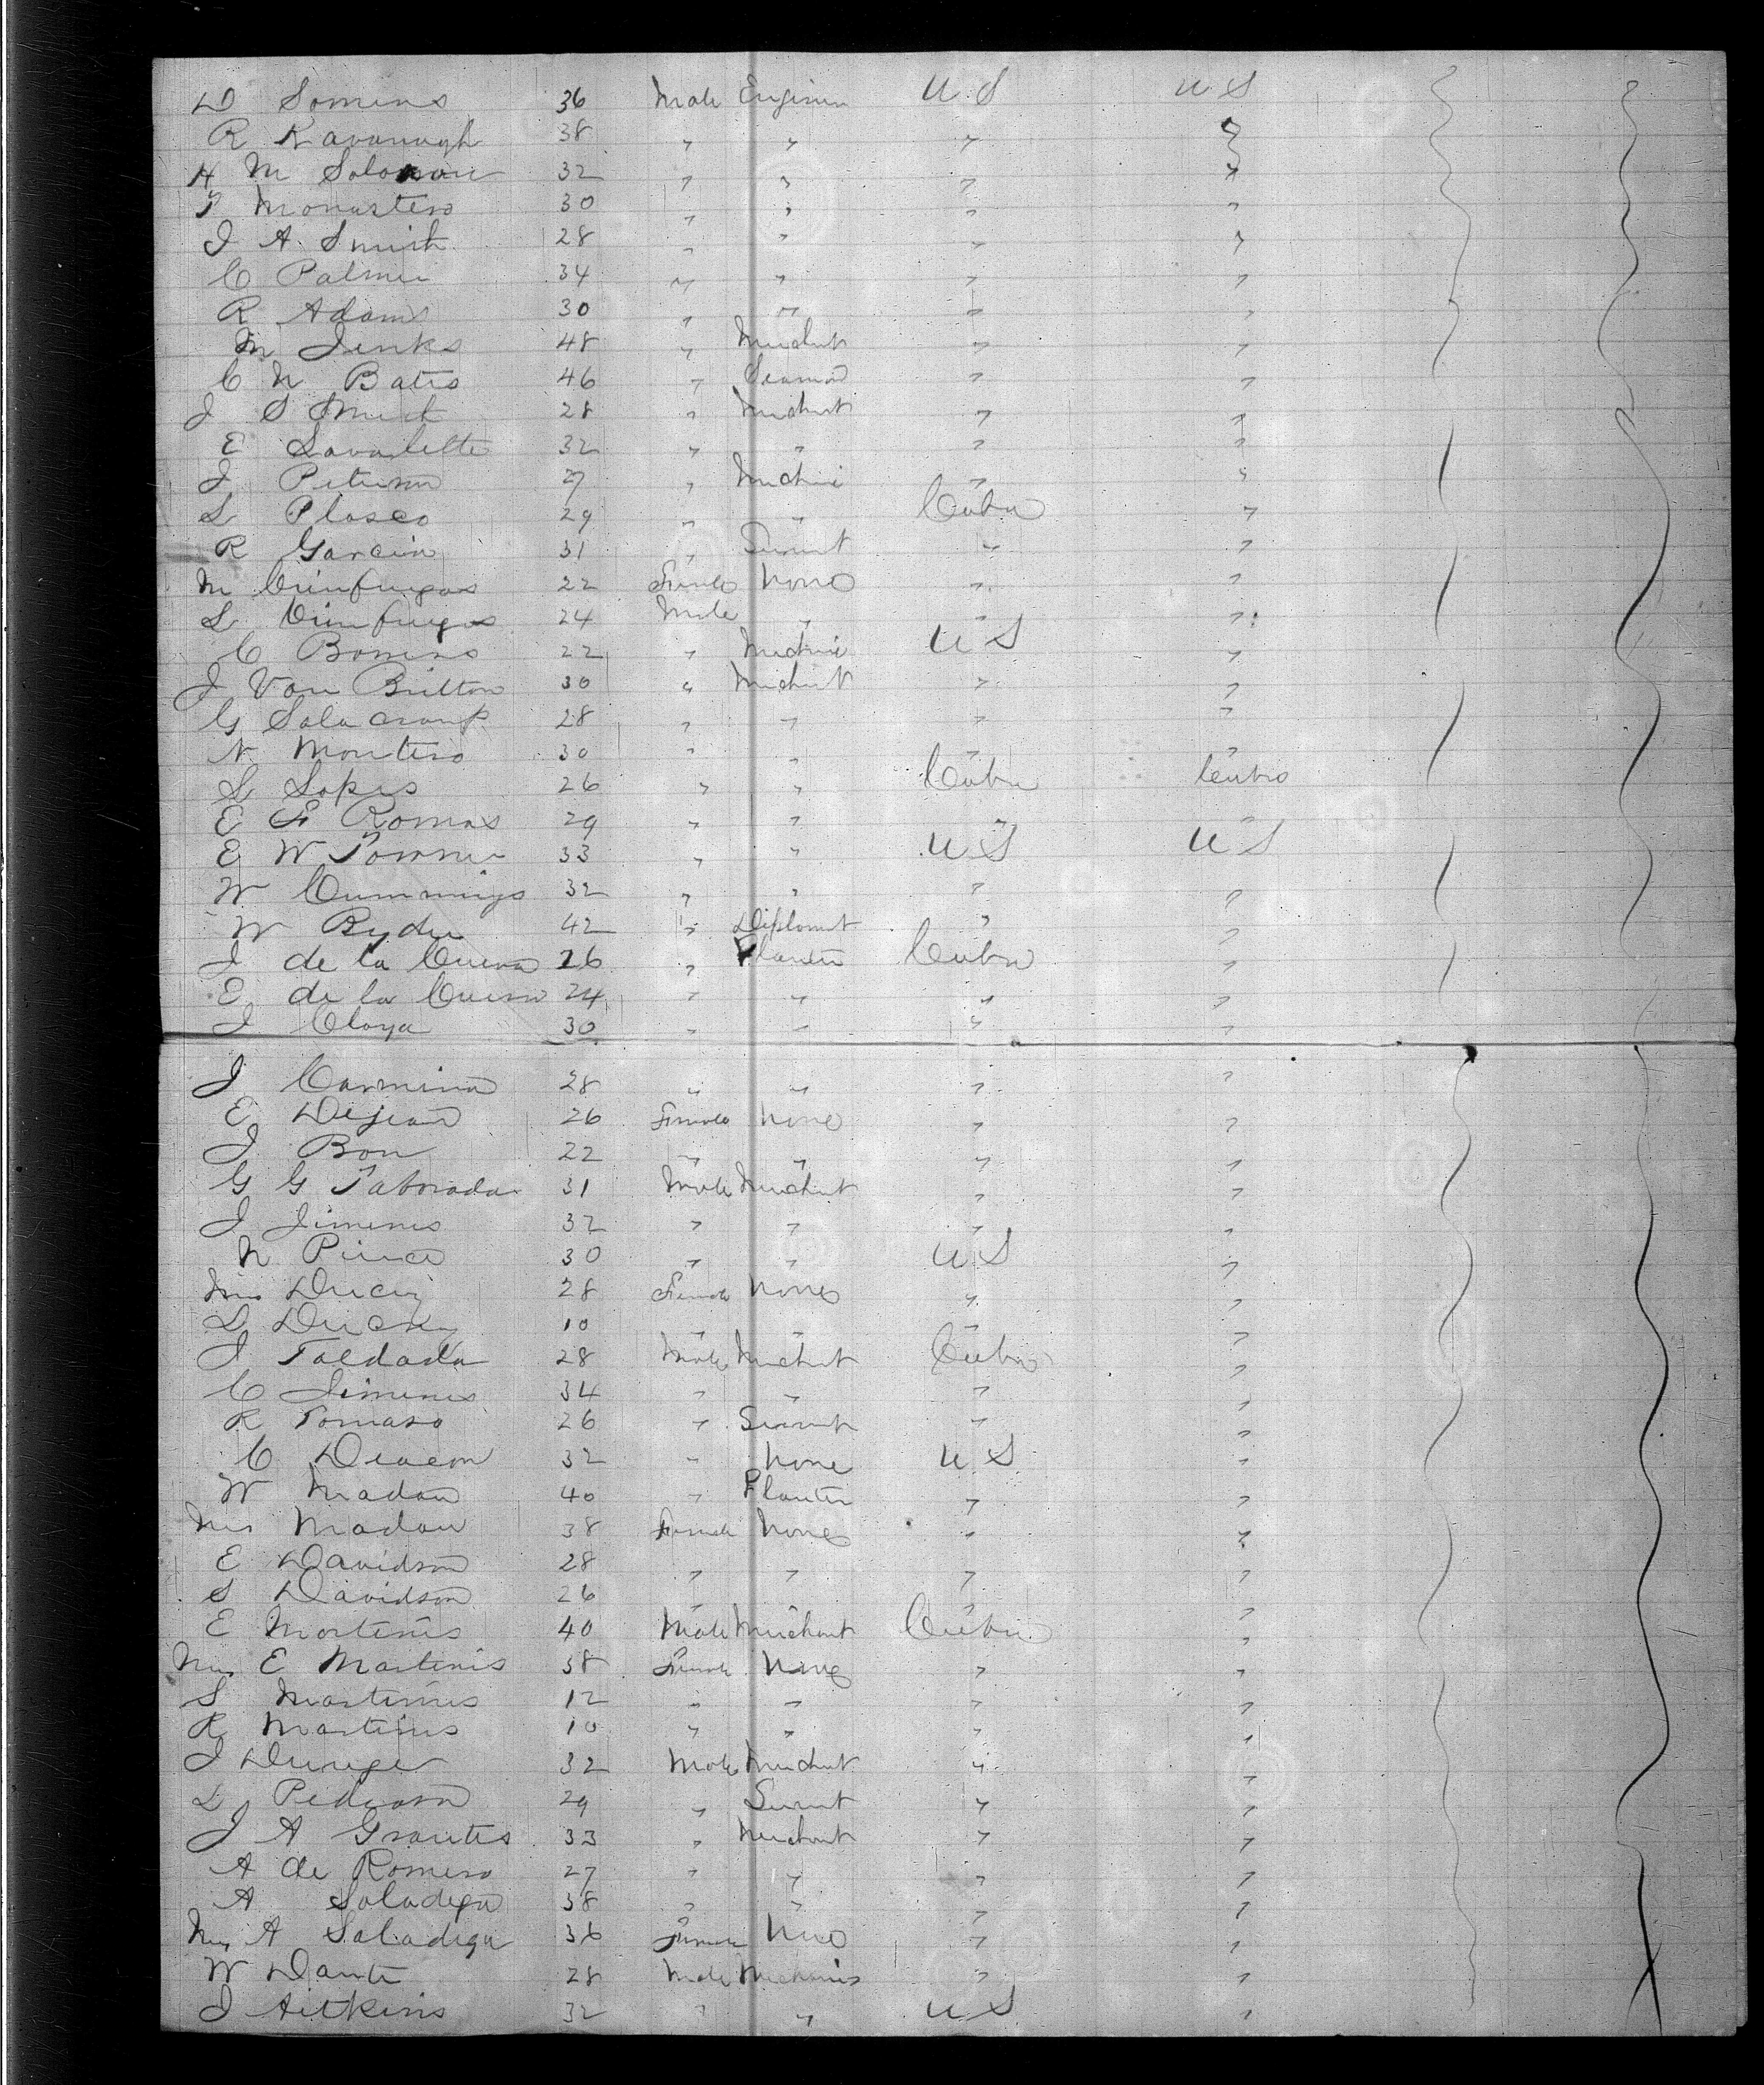 D Somens 36 Male Engineer U.S U S
R Kavanagh 38 " " " "
H M Solomon 32 " " " "
T Monastero 30 " " " "
J A. Smith 28 " " " "
C Palmer 34 " " " "
R Adams 30 " " " "
M Jenks 48 " Merchant " "
C N Bates 46 " Seaman " "
J S 28 " Merchant " "
E Lavallette 32 " " " "
J Peterson 27 " " "
L Plasco 29 " " Cuba "
R Garcia 31 " Servant " "
M Cienfuegos 22 Female None " "
L Cienfuegos 24 Male " " "
C 22 " U S "
J Van Britton 30 " Merchant " "
G 28 " " " "
N Montero 30 " " " "
L Lopes 26 " " Cuba Cuba
E F Romas 29 " " " "
E W 33 " " U S U S
W Cummings 32 " " " "
W Ryder 42 " Diplomat " "
J de la Cueva 26 " Planter Cuba "
E de la Cueva 24 " " " "
J Olaya 30 " " " "
J Carmina 28 " " " "
E Dejean 26 Female None " "
J Bon 22 " " " "
G G Taboada 31 Male Merchant " "
J Jimenes 32 " " " "
N Pierce 30 " " U S "
Mrs 28 Female None " "
L 10 " " " "
J 28 Male Merchant Cuba "
C Jimenes 34 " " " "
R Tomaso 26 " Servant " "
C Deacon 32 " None U S "
W Madan 40 " Planter " "
Mrs Madan 38 Female None " "
E Davidson 28 " " " "
S Davidson 26 " " " "
E Martinis 40 Male Merchant Cuba "
Mrs E Martinis 38 Female None " "
S Martinis 12 " " " "
R Martinis 10 " " " "
J 32 Male Merchant " "
L 29 " Servant " "
J A 33 " Merchant " "
A de Romero 27 " " " "
A Saladega 38 " " " "
Mrs A Saladega 36 Female None " "
W Dante 28 Male Mechanic " "
J Aitkens 32 " " U S "